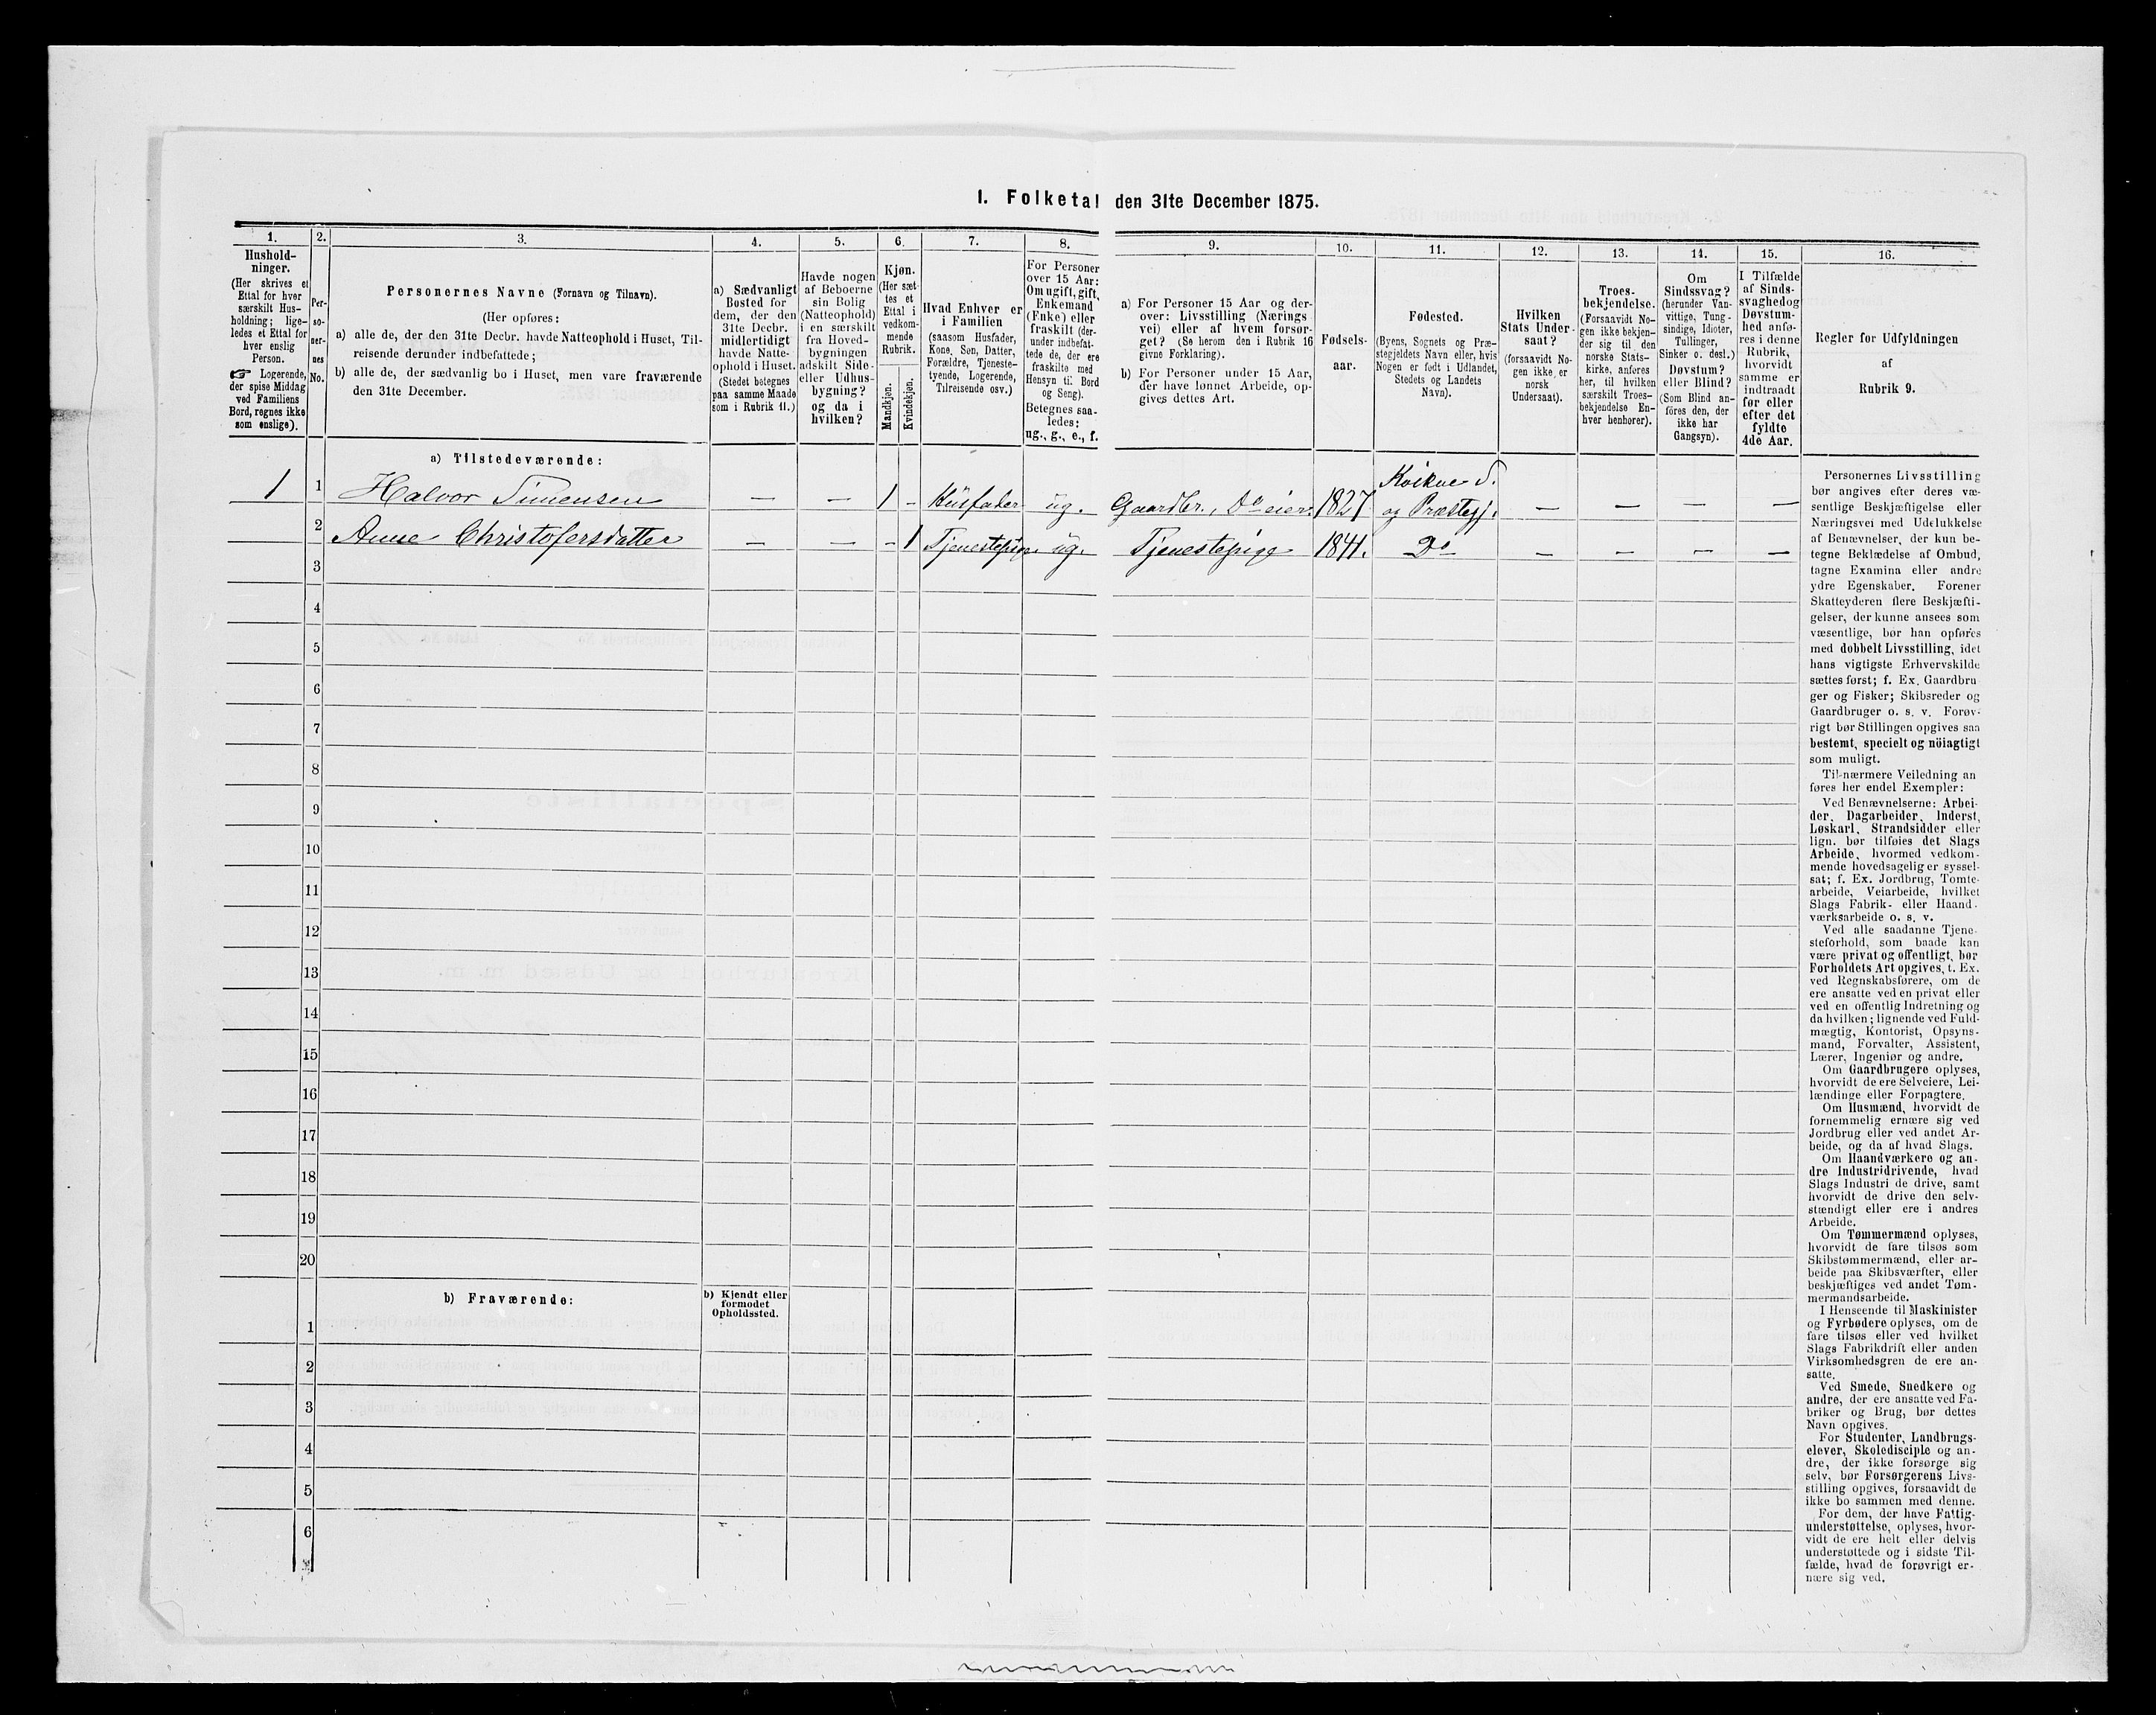 I. Folketal den 31te December 1875.
1.
Hushold-
ninger.
(Her skrives et
Ettal for hver
særskilt Hus-
holdning; lige-
ledes et Ettal for
hver enslig
Person.
☞ Logerende,
der spise Middag
ved Familiens
Bord, regnes ikke
som enslige).
2.
Per-
so-
ner-
nes
No.
3.
Personernes Navne (Fornavn og Tilnavn).
(Her opføres:
a) alle de, der den 31te Decbr. havde Natteophold i Huset, Til-
reisende derunder indbefattede;
b) alle de, der sædvanlig bo i Huset, men vare fraværende
den 31te December.
4.
a) Sædvanligt
Bosted for
dem, der den
31te Decbr.
midlertidigt
havde Natte-
ophold i Huset.
(Stedet betegnes
paa samme Maade
som i Rubrik 11.)
5.
Havde nogen
af Beboerne
sin Bolig
(Natteophold)
i en særskilt
fra Hoved-
bygningen
adskilt Side-
eller Udhus-
bygning?
og da i
hvilken?
6.
Kjøn.
(Her sæt-
tes et
Ettal i
vedkom-
mende
Rubrik.
Mandkjøn.
Kvindekjøn.
7.
Hvad Enhver er
i Familien
(saasom Husfader,
Kone, Søn, Datter,
Forældre, Tjeneste-
tyende, Logerende,
Tilreisende osv.)
8.
For Personer
over 15 Aar:
Om ugift, gift,
Enkemand
(Enke) eller
fraskilt (der-
under indbefat-
tede de, der ere
fraskilte med
Hensyn til Bord
og Seng).
Betegnes saa-
ledes:
ug., g., e., f.
9.
a) For Personer 15 Aar og der-
over: Livsstilling (Nærings-
vei) eller af hvem forsør-
get? (Se herom den i Rubrik 16
givne Forklaring).
b) For Personer under 15 Aar,
der have lønnet Arbeide, op-
gives dettes Art.
10.
Fødsels-
aar.
11.
Fødested.
(Byens, Sognets og Præ-
stegjeldets Navn eller, hvis
Nogen er født i Udlandet,
Stedets og Landets
Navn).
12.
Hvilken
Stats Under-
saat?
(forsaavidt No-
gen ikke er
norsk
Undersaat).
13.
Troes-
bekjendelse.
(Forsaavidt No-
gen ikke bekjen-
der sig til den
norske Stats-
kirke, anføres
her, til hvilken
særskilt Troes-
bekjendelse En-
hver henhører).
14.
Om
Sindssvag?
(herunder Van-
vittige, Tung-
sindige, Idioter,
Tullinger,
Sinker o. desl.)
Døvstum?
eller Blind?
(Som Blind an-
føres den, der
ikke har
Gangsyn).
15.
I Tilfælde
af Sinds-
svaghed og
Døvstum-
hed anfø-
res i denne
Rubrik,
hvorvidt
samme er
indtraadt
før eller
efter det
fyldte
4de Aar.
16.
Regler for Udfyldningen
af
Rubrik 9.
a) Tilstedeværende:
1 1 Halvor Simensen — — 1 - Husfader ug. Gaardbr., Do eier. 1827 Kvikne S. og Præstegj. — — — —
2 Anne Christofersdatter — — - 1 Tjenestepige ug. Tjenestepige 1841. Do — — — —
3
4
5
6
7
8
9
10
11
12
13
14
15
16
17
18
19
20
b) Fraværende:
b) Kjendt eller
formodet
Opholdssted.
1
2
3
4
5
6
Personernes Livsstilling
bør angives efter deres væ-
sentlige Beskjæftigelse eller
Næringsvei med Udelukkelse
af Benævnelser, der kun be-
tegne Beklædelse af Ombud,
tagne Examina eller andre
ydre Egenskaber. Forener
Skatteyderen flere Beskjæfti-
gelser, der kunne ansees som
væsentlige, bør han opføres
med dobbelt Livsstilling, idet
hans vigtigste Erhvervskilde
sættes først; f. Ex. Gaardbru-
ger og Fisker; Skibsreder og
Gaardbruger o. s. v. Forøv-
rigt bør Stillingen opgives saa
bestemt, specielt og nöiagtigt
som muligt.
Til nærmere Veiledning an
føres her endel Exempler:
Ved Benævnelserne: Arbei-
der, Dagarbeider, Inderst,
Løskarl, Strandsidder eller
lign. bør tilføies det Slags
Arbeide, hvormed vedkom-
mende hovedsagelig er syssel-
sat; f. Ex. Jordbrug, Tomte-
arbeide, Veiarbeide, hvilket
Slags Fabrik- eller Haand-
værksarbeide o. s. v.
Ved alle saadanne Tjene-
steforhold, som baade kan
være privat og offentligt, bør
Forholdets Art opgives, t. Ex.
ved Regnskabsførere, om de
ere ansatte ved en privat eller
ved en offentlig Indretning og
da hvilken; lignende ved Fuld-
mægtig, Kontorist, Opsyns-
mand, Forvalter, Assistent,
Lærer, Ingeniør og andre.
Om Gaardbrugere oplyses,
hvorvidt de ere Selveiere, Lei-
lændinge eller Forpagtere.
Om Husmænd, hvorvidt de
fornemmelig ernære sig ved
Jordbrug eller ved andet Ar-
beide, og da af hvad Slags.
Om Haandværkere og an-
dre Industridrivende, hvad
Slags Industri de drive, samt
hvorvidt de drive den selv-
stændigt eller ere i andres
Arbeide.
Om Tømmermænd oplyses,
hvorvidt de fare tilsøs som
Skibstømmermænd, eller ar-
beide paa Skibsværfter, eller
beskjæftiges ved andet Tøm-
mermandsarbeide.
I Henseende til Maskinister
og Fyrbødere oplyses, om de
fare tilsøs eller ved hvilket
Slags Fabrikdrift eller anden
Virksomhedsgren de ere an-
satte.
Ved Smede, Snedkere og
andre, der ere ansatte ved Fa-
briker og Brug, bør dettes
Navn opgives.
For Studenter, Landbrugs-
elever, Skoledisciple og an-
dre, der ikke forsørge sig
selv, bør Forsørgerens Livs-
stilling opgives, forsaavidt de
ikke bo sammen med denne.
For dem, der have Fattig-
understøttelse, oplyses, hvor-
vidt de ere helt eller delvis
understøttede og i sidste Til-
fælde, hvad de forøvrigt er-
nære sig ved.